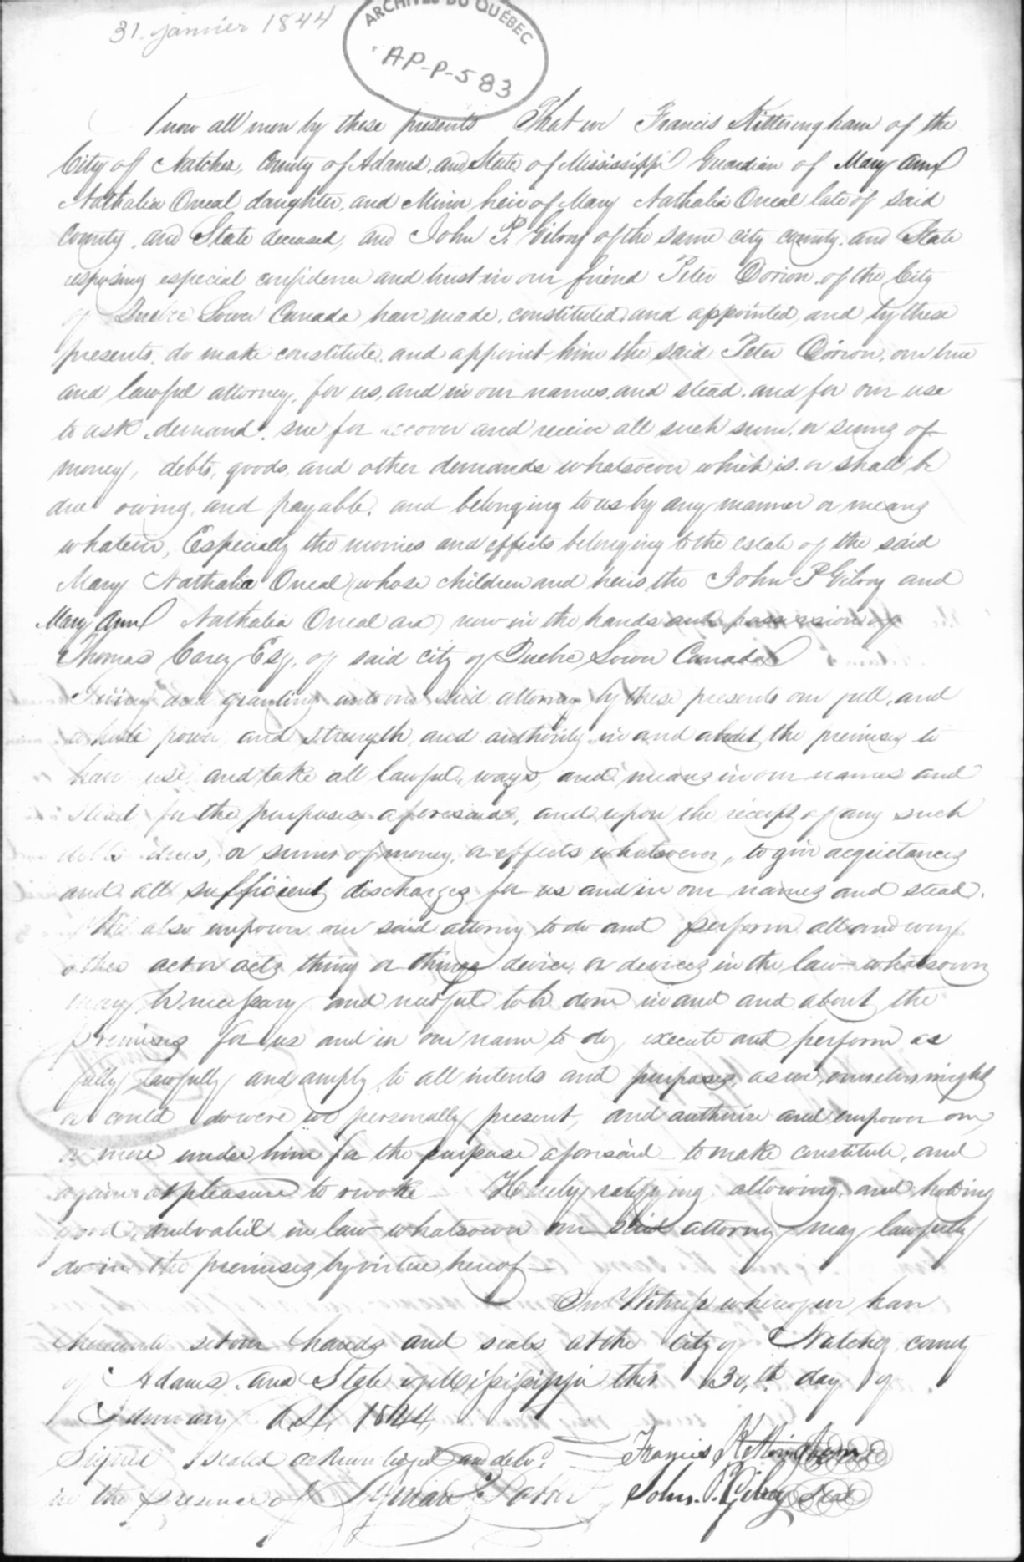 31. janvier 1844
ARCHIVES DU QUÉBEC
AP-P-583
Know all men by these presents That we Francis Kitteringham of the
City of Natchez, County of Adams, and State of Mississippi Guardian of Mary Ann
Nathalia Oneal daughter, and Minor heir of Mary Nathalia Oneal late of said
County, and State deceased, and John P. Gilroy of the same city county, and State
reposing especial confidence and trust in our friend Peter Dorion, of the City
of Quebec Lower Canada have made, constituted, and appointed, and by these
presents, do make constitute, and appoint him the said Peter Dorion, our true
and lawful attorney, for us, and in our names, and stead, and for our use
to ask, demand, sue for recover and receive all such sum, or sums of
money, debts, goods, and other demands whatsoever which is or shall be
due owing, and payable, and belonging to us by any manner or means
whatever, Especially the monies and effects belonging to the estate of the said
Mary Nathalia Oneal (whose children and heirs the John P Gilroy and
Mary Ann Nathalia Oneal are) now in the hands and possession of
Thomas Carey Esq. of said city of Quebec Lower Canada
Giving and granting unto our said attorney by these presents our full, and
whole power, and strength, and authority in and about the premises to
have use, and take all lawful, ways, and means in our names and
stead for the purposes aforesaid, and upon the receipt of any such
debts dues, or sums of money, or effects whatsoever, to give acquietances
and all sufficient discharges for us and in our names and stead.
We also empower our said attorney to do and perform all and every
other act or acts thing or things device, or devices in the law whatsoever
may be necessary and needful to be done in and and about the
premises for us and in our name to do, execute and perform as
fully lawfully and amply to all intents and purposes, as we, ourselves might
or could do were we personally present, and authorise and empower one,
or more under him for the purpose aforesaid to make constitute, and
again at pleasure to revoke Hereby ratifying, allowing, and holding
good, and valid in law whatsoever our said attorney may lawfully
do in the premises by virtue hereof—
In Witness whereof we have
hereunto set our hands and seals at the City of Natchez, county
of Adams, and State of Mississippi this 30th day of
January A.D. 1844
Signed sealed acknowledged and delvd
in the presence of
Francis Kitteringham
John. P. Gilroy Seal